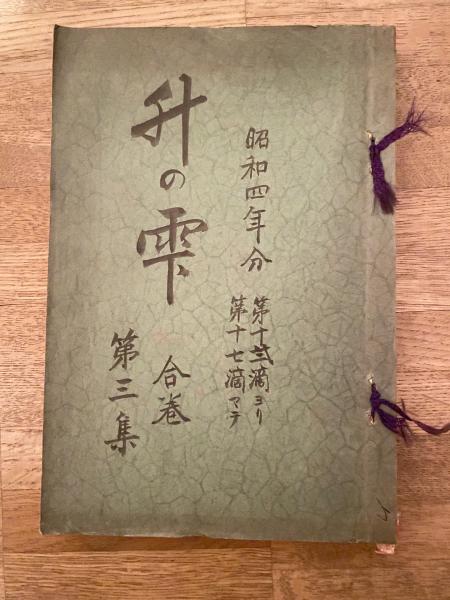 昭和四年分
第十弐滴ヨリ
第十七滴マテ
升の雫
合巻
第三集